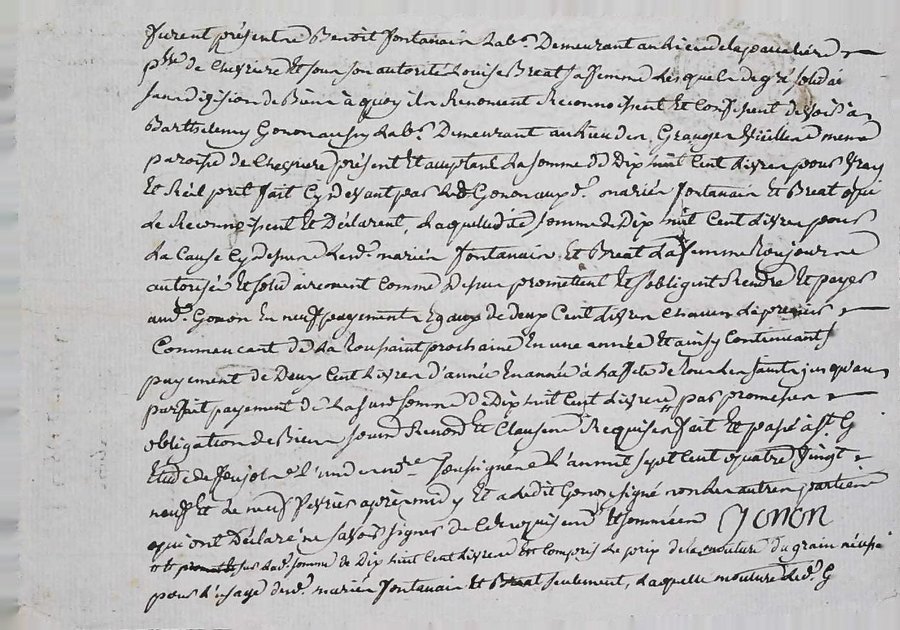 furent présents Benoit fontanais Lab.r Demeurant au Lieu de la
p.sse de chevriere Et sous son autorité Louise Breat sa femme Lesquels de gré solid.t
sans division de Biens à quoy ils Renoncent Reconnoissent Et Confessent devoir à
Barthelemy Gonon aussy Lab.r Demeurant au Lieu des Granges même
paroisse de chevriere présent Et acceptant La somme de Dix huit Cent Livres pour vray
Et Réél prêt fait Cy devant par Led. Gonon auxd. mariés fontanais Et Breat
Le Reconnoissent Et Déclarent, Laquelle ditte somme de Dix huit Cent Livres pour
La Cause Cy dessus Lesd. mariés fontanais Et Breat La femme Toujours
autorisée Et solidairement comme Dessus promettent Et s'obligent Rendre Et payer
aud. Gonon En neuf payements Egaux de deux Cent Livres chacun Le premier
Commencant de La Toussaint prochaine En une année Et ainsy Continuant
payement de Deux Cent Livres d'année En année à La fete de Tous Les saints jusqu'au
parfait payement de La susd. somme de Dix huit Cent Livres par promesses
obligation de Biens soumis. Renon. Et Clauses Requises fait Et passé à S.t G
Etude de L'un des no.res soussignés L'an mil sept Cent quatre vingt
neuf Et Le neuf fevrier après midy Et a Ledit Gonon signé non Les autres parties
qui ont Déclaré ne savoir signer de Ce Requises Et sommées Gonon
sur Lad. somme de Dix huit Cent Livres Est Compris Le prix de la mouture du grain
pour L'usage desd. mariés fontanais Et Breat seulement, Laquelle mouture Led. G